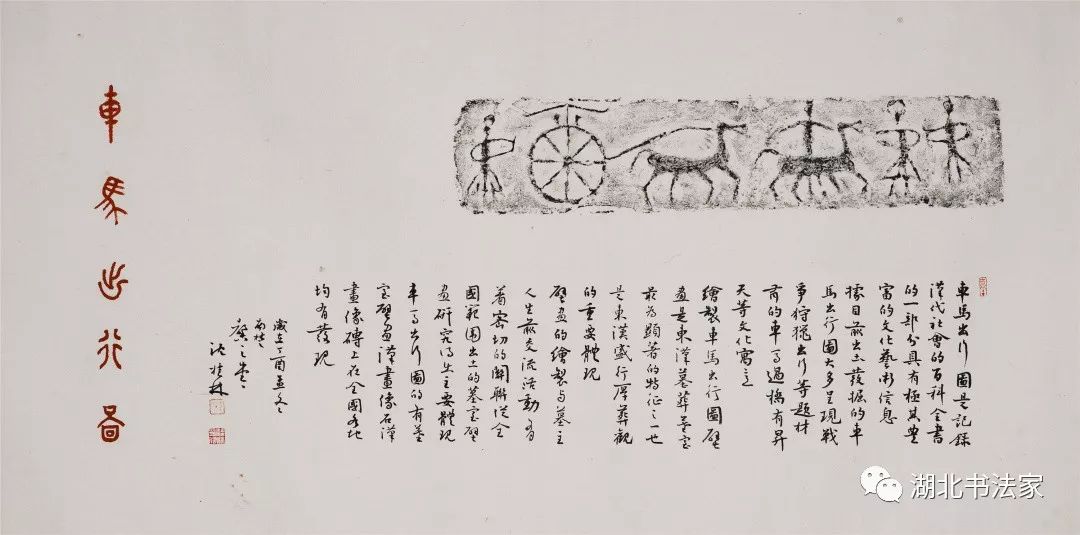 車馬出行圖是記錄
漢代社會的百科全書
的一部分具有極其豐
富的文化藝術信息
據目前出土發掘的車
馬出行圖大多呈現戰
爭狩獵出行等題材
有的車馬過橋有昇
天等文化寓意
繪製車馬出行圖壁
畫是東漢墓葬墓室
最為顯著的特征之一也
是東漢盛行厚葬觀
的重要體現
壁畫的繪製與墓主
人生前交流活動有
着密切的關聯從全
國範圍出土的墓室壁
畫研究得出主要體現
車馬出行圖的有墓
室壁畫漢畫像石漢
畫像磚上在全國各地
均有發現
歲在丁酉孟冬
車馬出行圖
湖北书法家